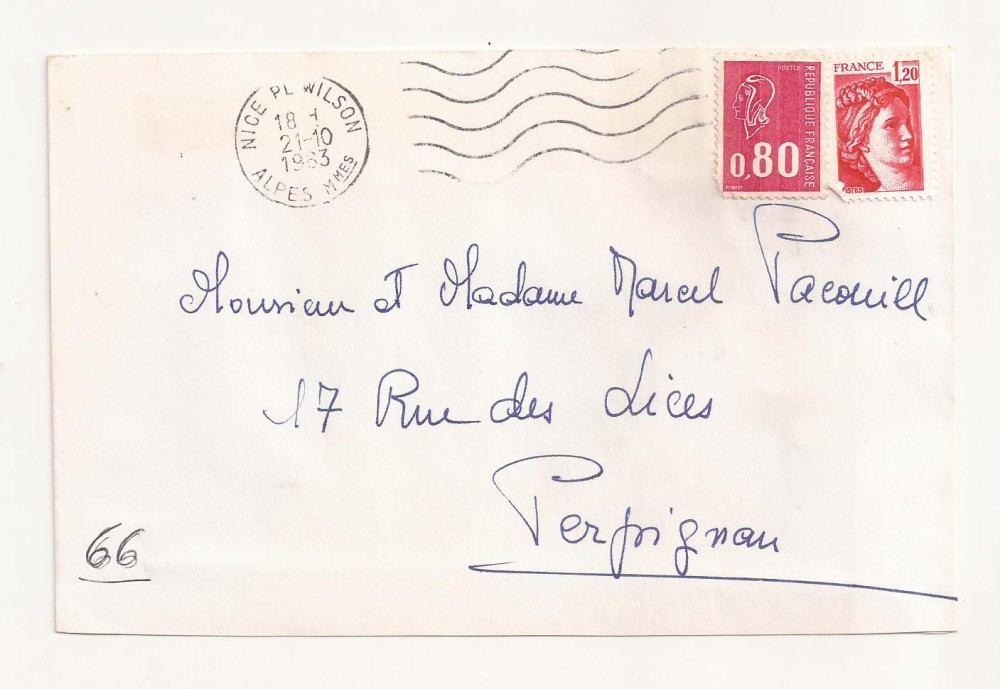 NICE PL WILSON
18 H
21-10
1983
ALPES MMES
POSTES
REPUBLIQUE FRANÇAISE
0,80
FRANCE 1,20
Monsieur et Madame Marcel Pacouill
17 Rue des Lices
Perpignan
66